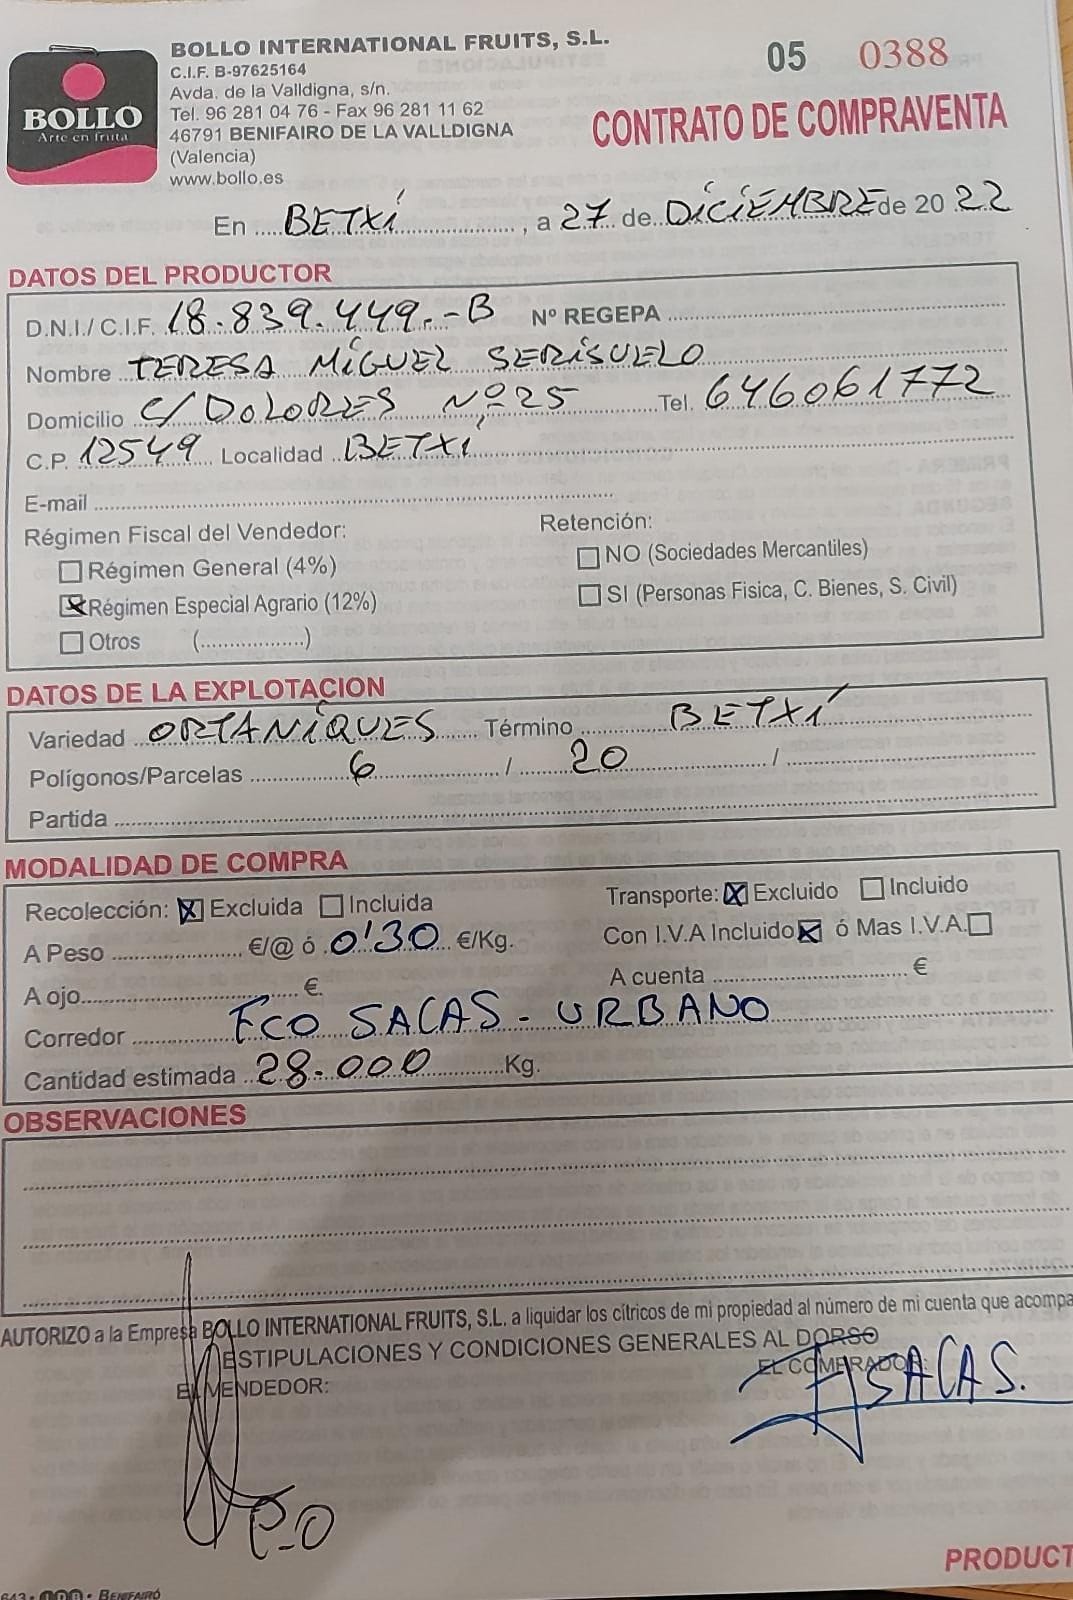 BOLLO
Arte en fruta
BOLLO INTERNATIONAL FRUITS, S.L.
C.I.F. B-97625164
Avda. de la Valldigna, s/n.
Tel. 96 281 04 76 - Fax 96 281 11 62
46791 BENIFAIRO DE LA VALLDIGNA
(Valencia)
www.bollo.es
05 0388
CONTRATO DE COMPRAVENTA
En BETXÍ, a 27 de DICIEMBRE de 20 22
DATOS DEL PRODUCTOR
D.N.I./ C.I.F. 18.839.449.-B Nº REGEPA
Nombre TERESA MIGUEL SERISUELO
Domicilio C/ DOLORES Nº 25 Tel. 646061772
C.P. 12549 Localidad BETXÍ
E-mail
Régimen Fiscal del Vendedor: Retención:
Régimen General (4%) NO (Sociedades Mercantiles)
Régimen Especial Agrario (12%) SI (Personas Fisica, C. Bienes, S. Civil)
Otros (..................)
DATOS DE LA EXPLOTACION
Variedad ORTANIQUES Término BETXÍ
Polígonos/Parcelas 6 / 20 /
Partida
MODALIDAD DE COMPRA
Recolección: X Excluida Incluida Transporte: X Excluido Incluido
A Peso €/@ ó 0'30 €/Kg. Con I.V.A Incluido X ó Mas I.V.A.
A ojo € A cuenta €
Corredor FCO SACAS - URBANO
Cantidad estimada 28.000 Kg.
OBSERVACIONES
AUTORIZO a la Empresa BOLLO INTERNATIONAL FRUITS, S.L. a liquidar los cítricos de mi propiedad al número de mi cuenta que acompa
ESTIPULACIONES Y CONDICIONES GENERALES AL DORSO
EL VENDEDOR: EL COMPRADOR:
P.O SACAS.
PRODUCT
BENIFAIRÓ